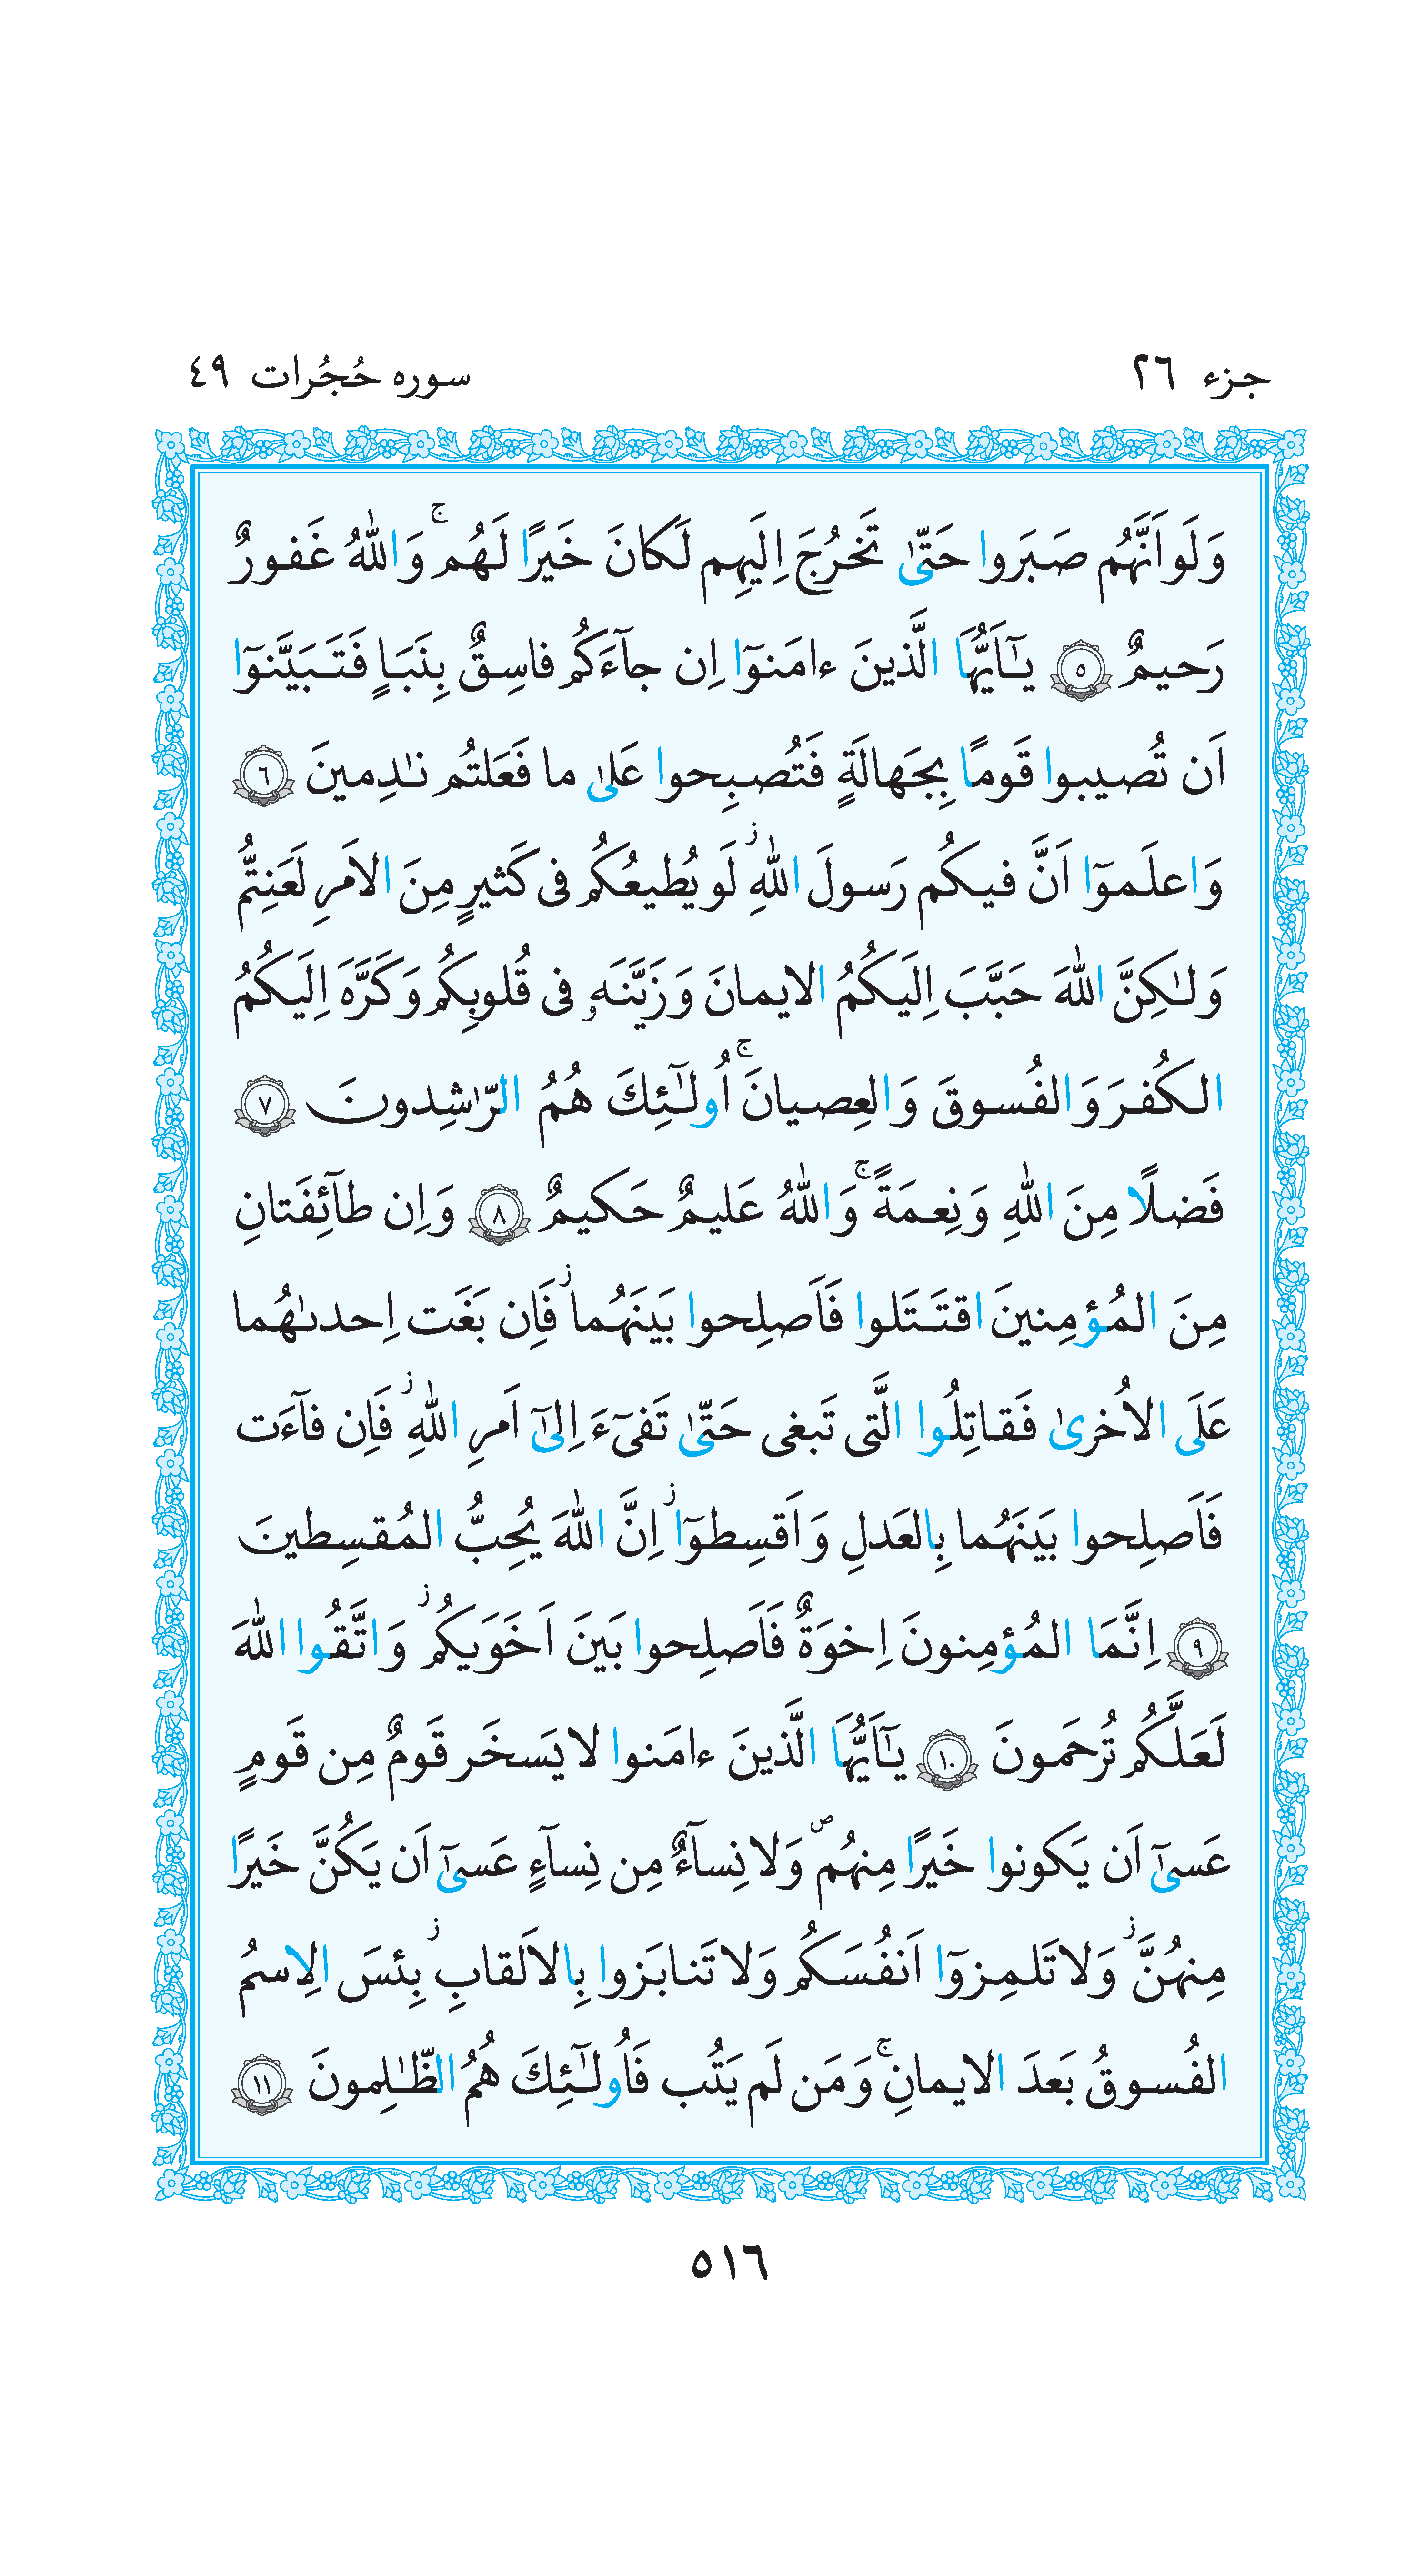 جزء ٢٦
سوره حُجُرات ٤٩
وَلَو اَنَّهُم صَبَروا حَتّىٰ تَخرُجَ اِلَيهِم لَكانَ خَيرًا لَهُم ۚ وَاللّٰهُ غَفورٌ
رَحيمٌ ٥ يـٰٓاَيُّهَا الَّذينَ ءامَنوٓا اِن جآءَكُم فاسِقٌ بِنَبَاٍ فَتَبَيَّنوٓا
اَن تُصيبوا قَومًا بِجَهالَةٍ فَتُصبِحوا عَلىٰ ما فَعَلتُم نـٰدِمينَ ٦
وَاعلَموٓا اَنَّ فيكُم رَسولَ اللّٰهِ ۚز لَو يُطيعُكُم فى كَثيرٍ مِنَ الاَمرِ لَعَنِتُّم
وَلـٰكِنَّ اللّٰهَ حَبَّبَ اِلَيكُمُ الايمانَ وَ زَيَّنَهو فى قُلوبِكُم وَكَرَّهَ اِلَيكُمُ
الكُفرَ وَالفُسوقَ وَالعِصيانَ ۚ اُولـٰٓئِكَ هُمُ الرّٰشِدونَ ٧
فَضلًا مِنَ اللّٰهِ وَنِعمَةً ۚ وَاللّٰهُ عَليمٌ حَكيمٌ ٨ وَ اِن طآئِفَتانِ
مِنَ المُؤمِنينَ اقتَتَلوا فَاَصلِحوا بَينَهُما ز فَاِن بَغَت اِحدىٰهُما
عَلَى الاُخرىٰ فَقاتِلُوا الَّتى تَبغى حَتّىٰ تَفىٓءَ اِلىٰٓ اَمرِ اللّٰهِ ز فَاِن فآءَت
فَاَصلِحوا بَينَهُما بِالعَدلِ وَ اَقسِطوٓا ز اِنَّ اللّٰهَ يُحِبُّ المُقسِطينَ
٩ اِنَّمَا المُؤمِنونَ اِخوَةٌ فَاَصلِحوا بَينَ اَخَوَيكُم ز وَاتَّقُوا اللّٰهَ
لَعَلَّكُم تُرحَمونَ ١٠ يـٰٓاَيُّهَا الَّذينَ ءامَنوا لا يَسخَر قَومٌ مِن قَومٍ
عَسىٰٓ اَن يَكونوا خَيرًا مِنهُم ص وَلا نِسآءٌ مِن نِسآءٍ عَسىٰٓ اَن يَكُنَّ خَيرًا
مِنهُنَّ ز وَلا تَلمِزوٓا اَنفُسَكُم وَلا تَنابَزوا بِالاَلقابِ ز بِئسَ الاِسمُ
الفُسوقُ بَعدَ الايمانِ ۚ وَ مَن لَم يَتُب فَاُولـٰٓئِكَ هُمُ الظّـٰلِمونَ ١١
٥١٦